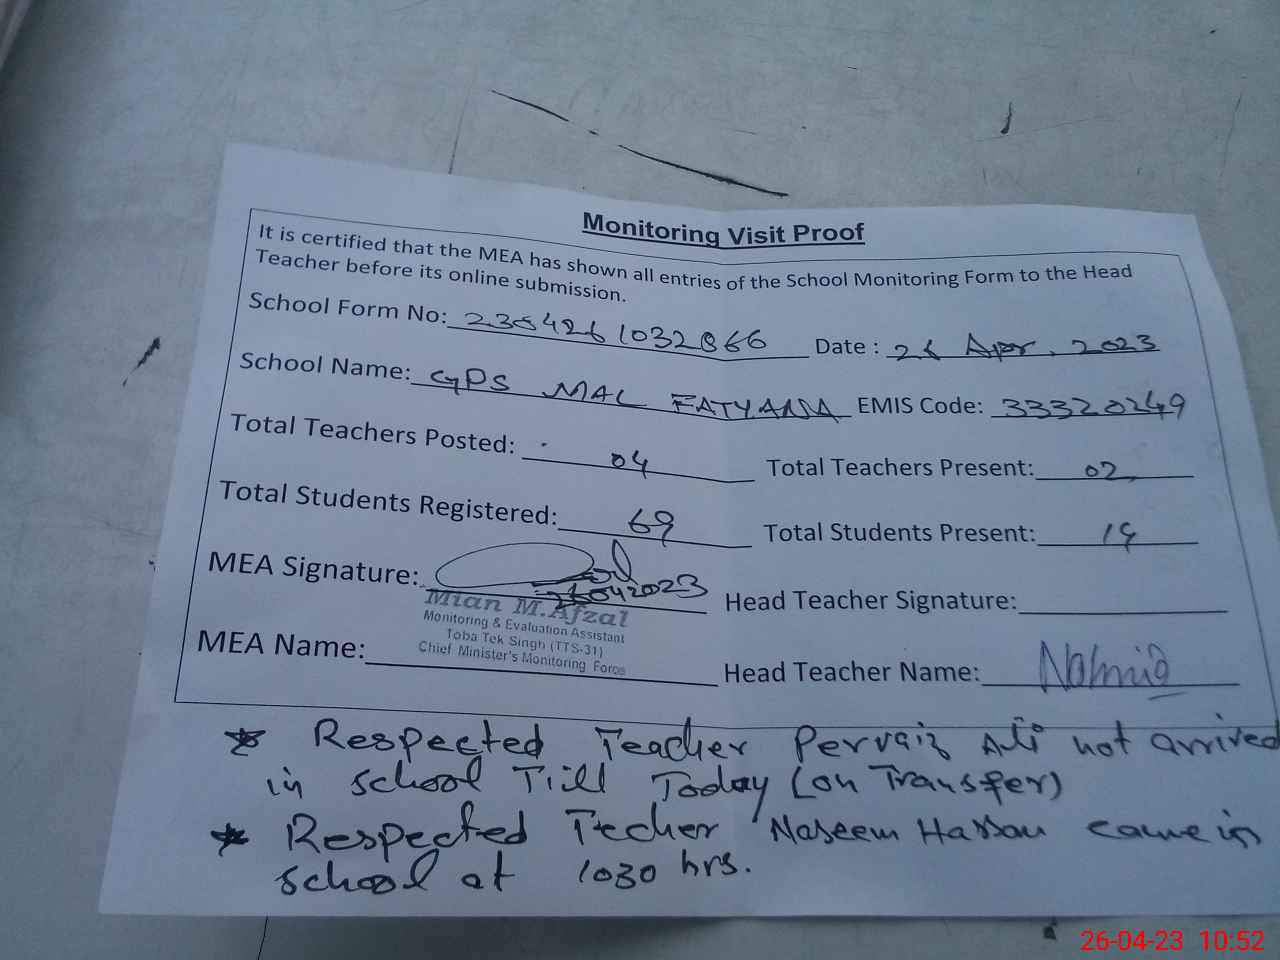 Monitoring Visit Proof
It is certified that the MEA has shown all entries of the School Monitoring Form to the Head
Teacher before its online submission.
School Form No: 2304261032866 Date : 26 Apr, 2023
School Name: GPS MAL FATYANA EMIS Code: 33320249
Total Teachers Posted: 04 Total Teachers Present: 02
Total Students Registered: 69 Total Students Present: 19
MEA Signature: 26042023 Head Teacher Signature:
Mian M.Afzal
Monitoring & Evaluation Assistant
Toba Tek Singh (TTS-31)
Chief Minister's Monitoring Force
MEA Name: Head Teacher Name:
* Respected Teacher Pervaiz Ali not arrived
in school Till Today (on Transfer)
* Respected Techer Naseem Hassan came in
school at 1030 hrs.
26-04-23 10:52